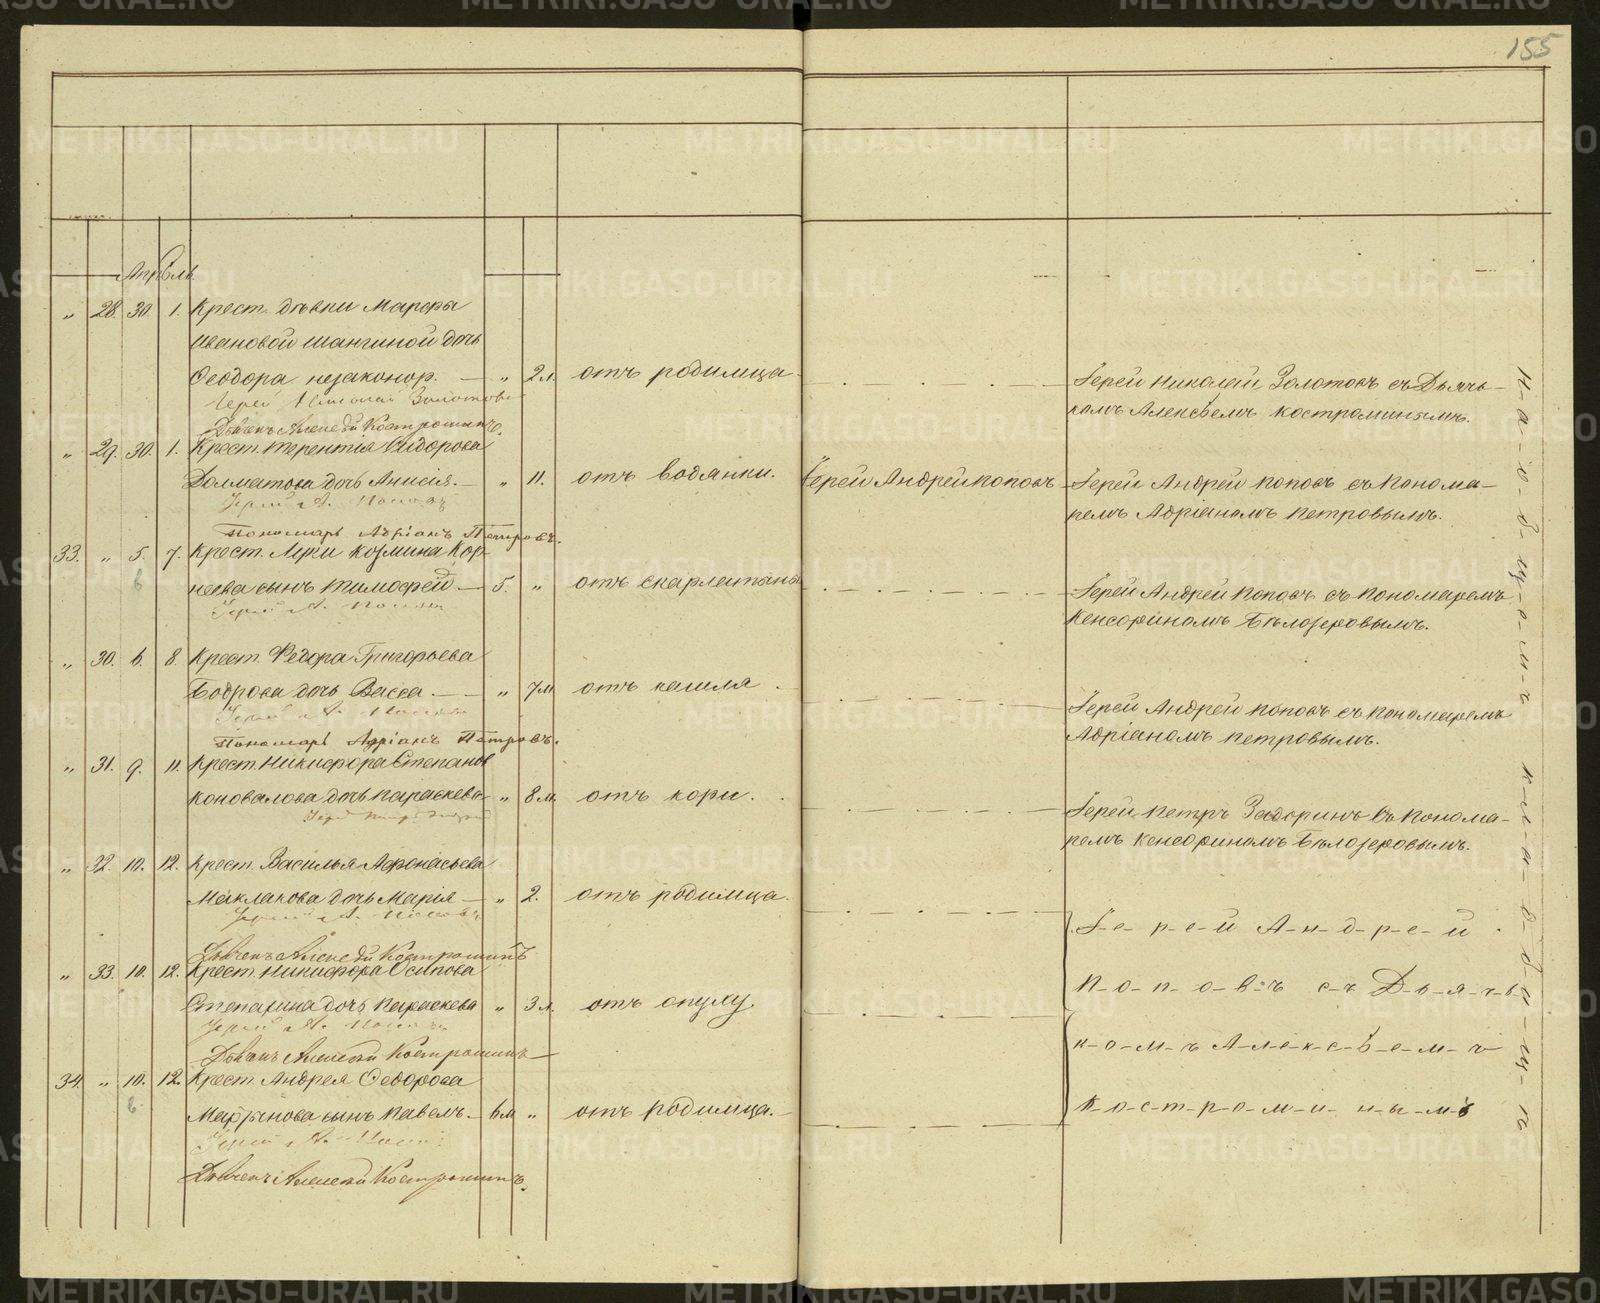 155
Апрѣль
„ 28. 30. 1. Крест. дѣвки Марфы
Ивановой Шангиной дочь
Ѳеодора незаконор. — „ 2 м. отъ родимца
Іерей Николай Золотовъ съ Дьячь-
комъ Алексѣемъ Костроминымъ.
Іерей Николай Золотовъ
Дьячекъ Алексѣй Костроминъ.
„ 29. 30. 1. Крест. Терентія Сидорова
Долматова дочь Анисія. — „ 11. отъ водянки. Іерей Андрей Поповъ Іерей Андрей Поповъ съ Понома-
ремъ Адріаномъ Петровымъ.
Іерей А. Поповъ
Пономарь Адріанъ Петровъ.
33. „ 5. 7. Крест. Луки Козмина Кор-
неева сынъ Тимофей — 5. „ отъ скарлатины
Іерей Андрей Поповъ съ Пономаремъ
Кенсориномъ Бѣлозеровымъ.
6
Іерей А. Поповъ
„ 30. 6. 8. Крест. Федора Григорьева
Бодрова дочь Васса. — „ 7 м. отъ кашля
Іерей Андрей Поповъ съ Пономаремъ
Адріаномъ Петровымъ.
Іерей А. Поповъ
Пономарь Адріанъ Петровъ.
„ 31. 9. 11. Крест. Никифора Степанов
Коновалова дочь Параскева „ 8 м. отъ кори.
Іерей Петръ Задоринъ съ Понома-
ремъ Кенсориномъ Бѣлозеровымъ.
Іерей Петръ Задоринъ
„ 32. 10. 12. Крест. Василья Афонасьева
Маклакова дочь Марія — „ 2. отъ родимца.
Іерей А. Поповъ
Дьячекъ Алексѣй Костроминъ
Іерей Андрей
„ 33. 10. 12. Крест. Никифора Осипова
Поповъ съ Дьячь-
Степанина дочь Параскева „ 3 м. отъ опуху.
Іерей А. Поповъ
Дьячекъ Алексѣй Костроминъ
комъ Алексѣемъ
34. „ 10. 12. Крест. Андрея Ѳедорова
6
Костроминымъ
сынъ Павелъ. — 6 м „ отъ родимца.
Іерей А. Поповъ
Дьячекъ Алексѣй Костроминъ.
на общемъ кладбищѣ
METRIKI.GASO-URAL.RU